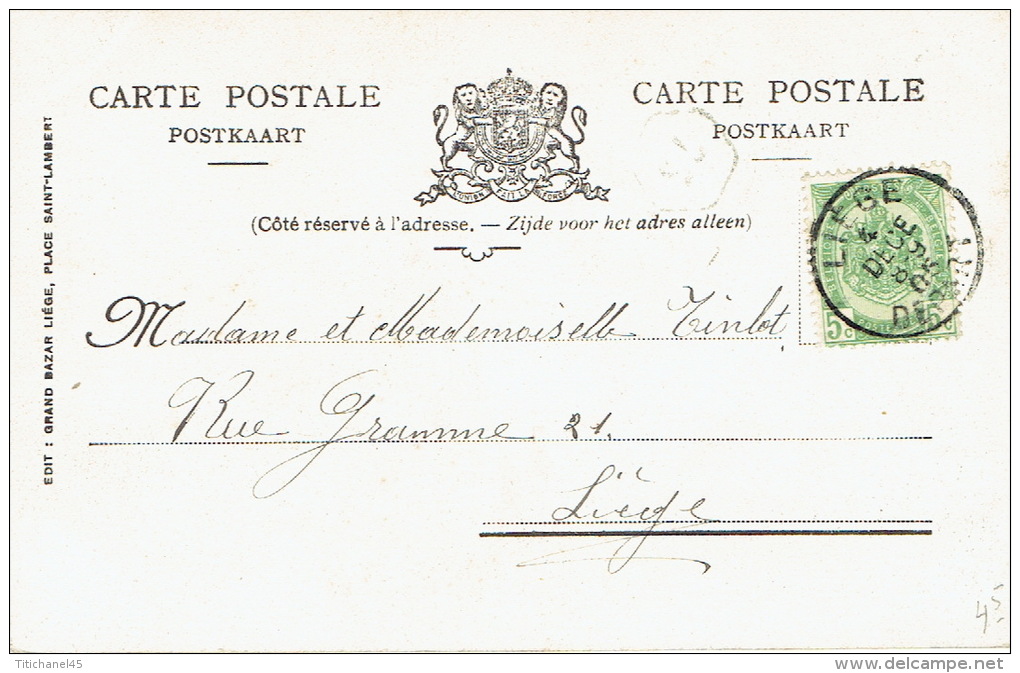 CARTE POSTALE
POSTKAART
CARTE POSTALE
POSTKAART
L'UNION FAIT LA FORCE
(Côté réservé à l'adresse. — Zijde voor het adres alleen)
EDIT : GRAND BAZAR LIÉGE, PLACE SAINT-LAMBERT
LIEGE
4
DECE
DEPART
5c 5c
Madame et Mademoiselle Tinlot
Rue Gramme 21.
Liège
45
Titichanel45
www.delcampe.net